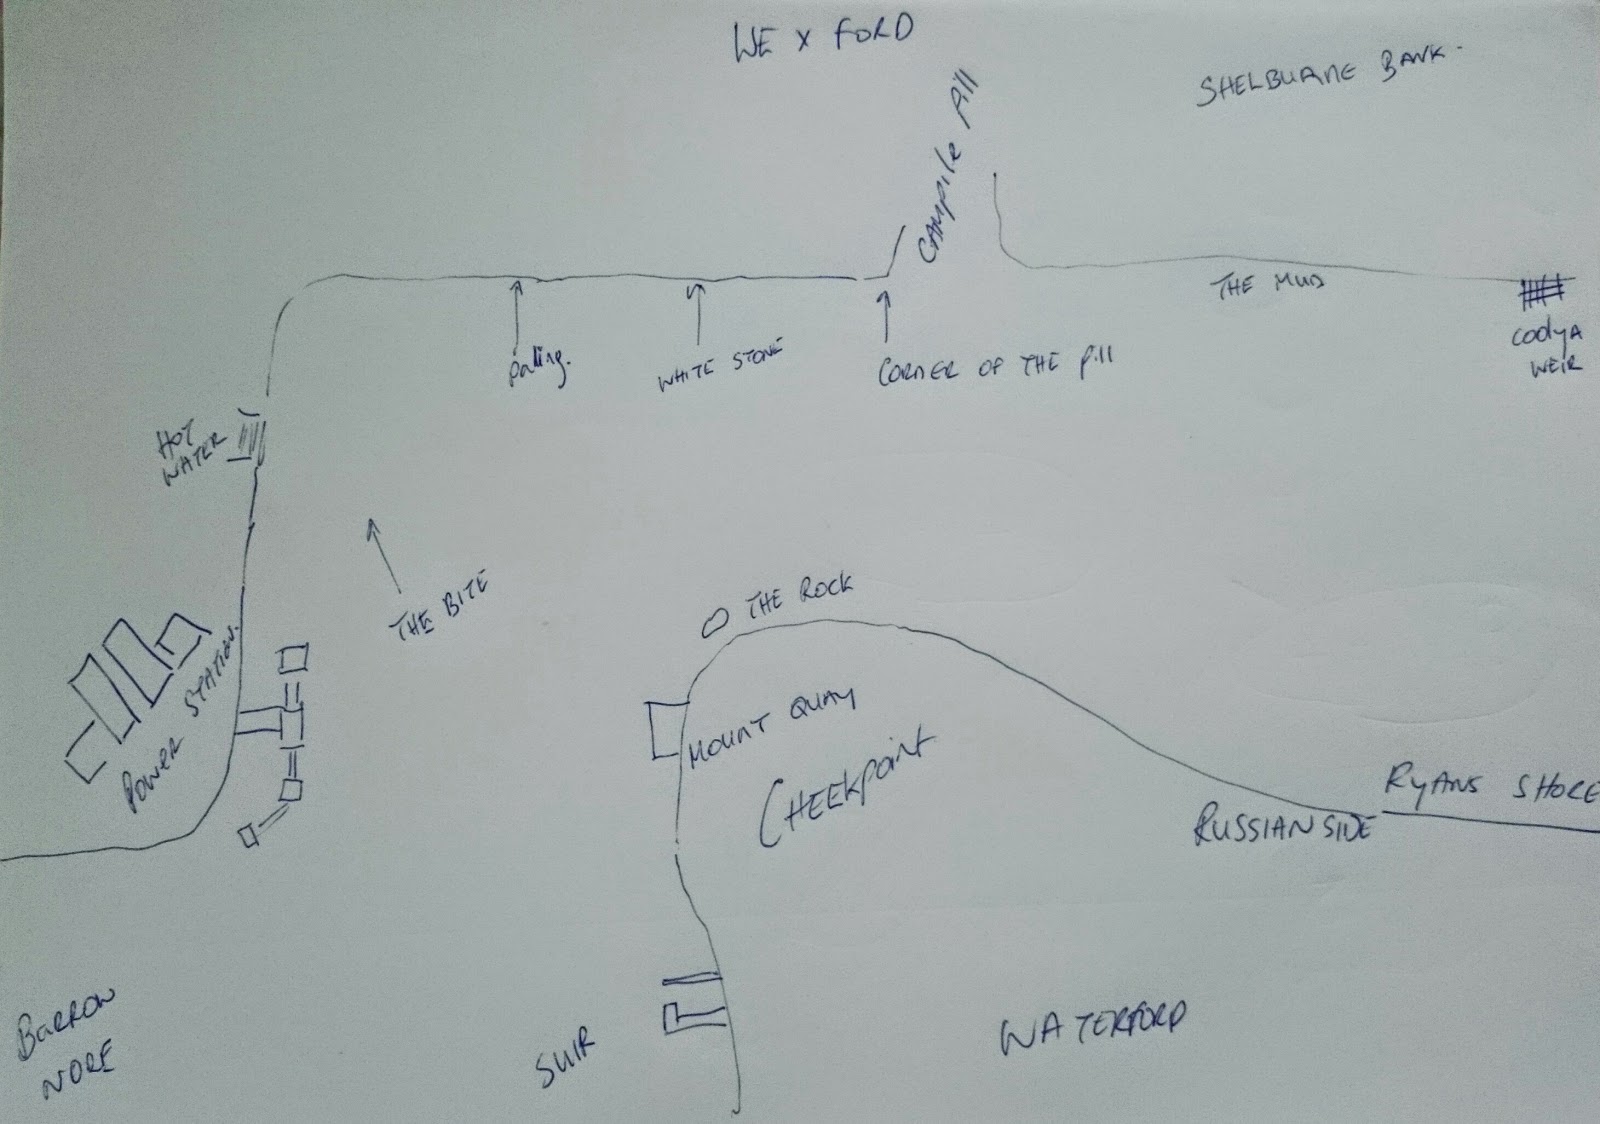 WEXFORD
SHELBURNE BANK.
CAMPILE Pill
THE MUD
CODYA
WEIR
paling.
WHITE STONE
CORNER OF THE Pill
HOT
WATER
THE BITE
THE ROCK
POWER STATION.
MOUNT QUAY
CHEEKPOINT
RYANS SHORE
RUSSIANSIDE
BARROW
NORE
SUIR
WATERFORD